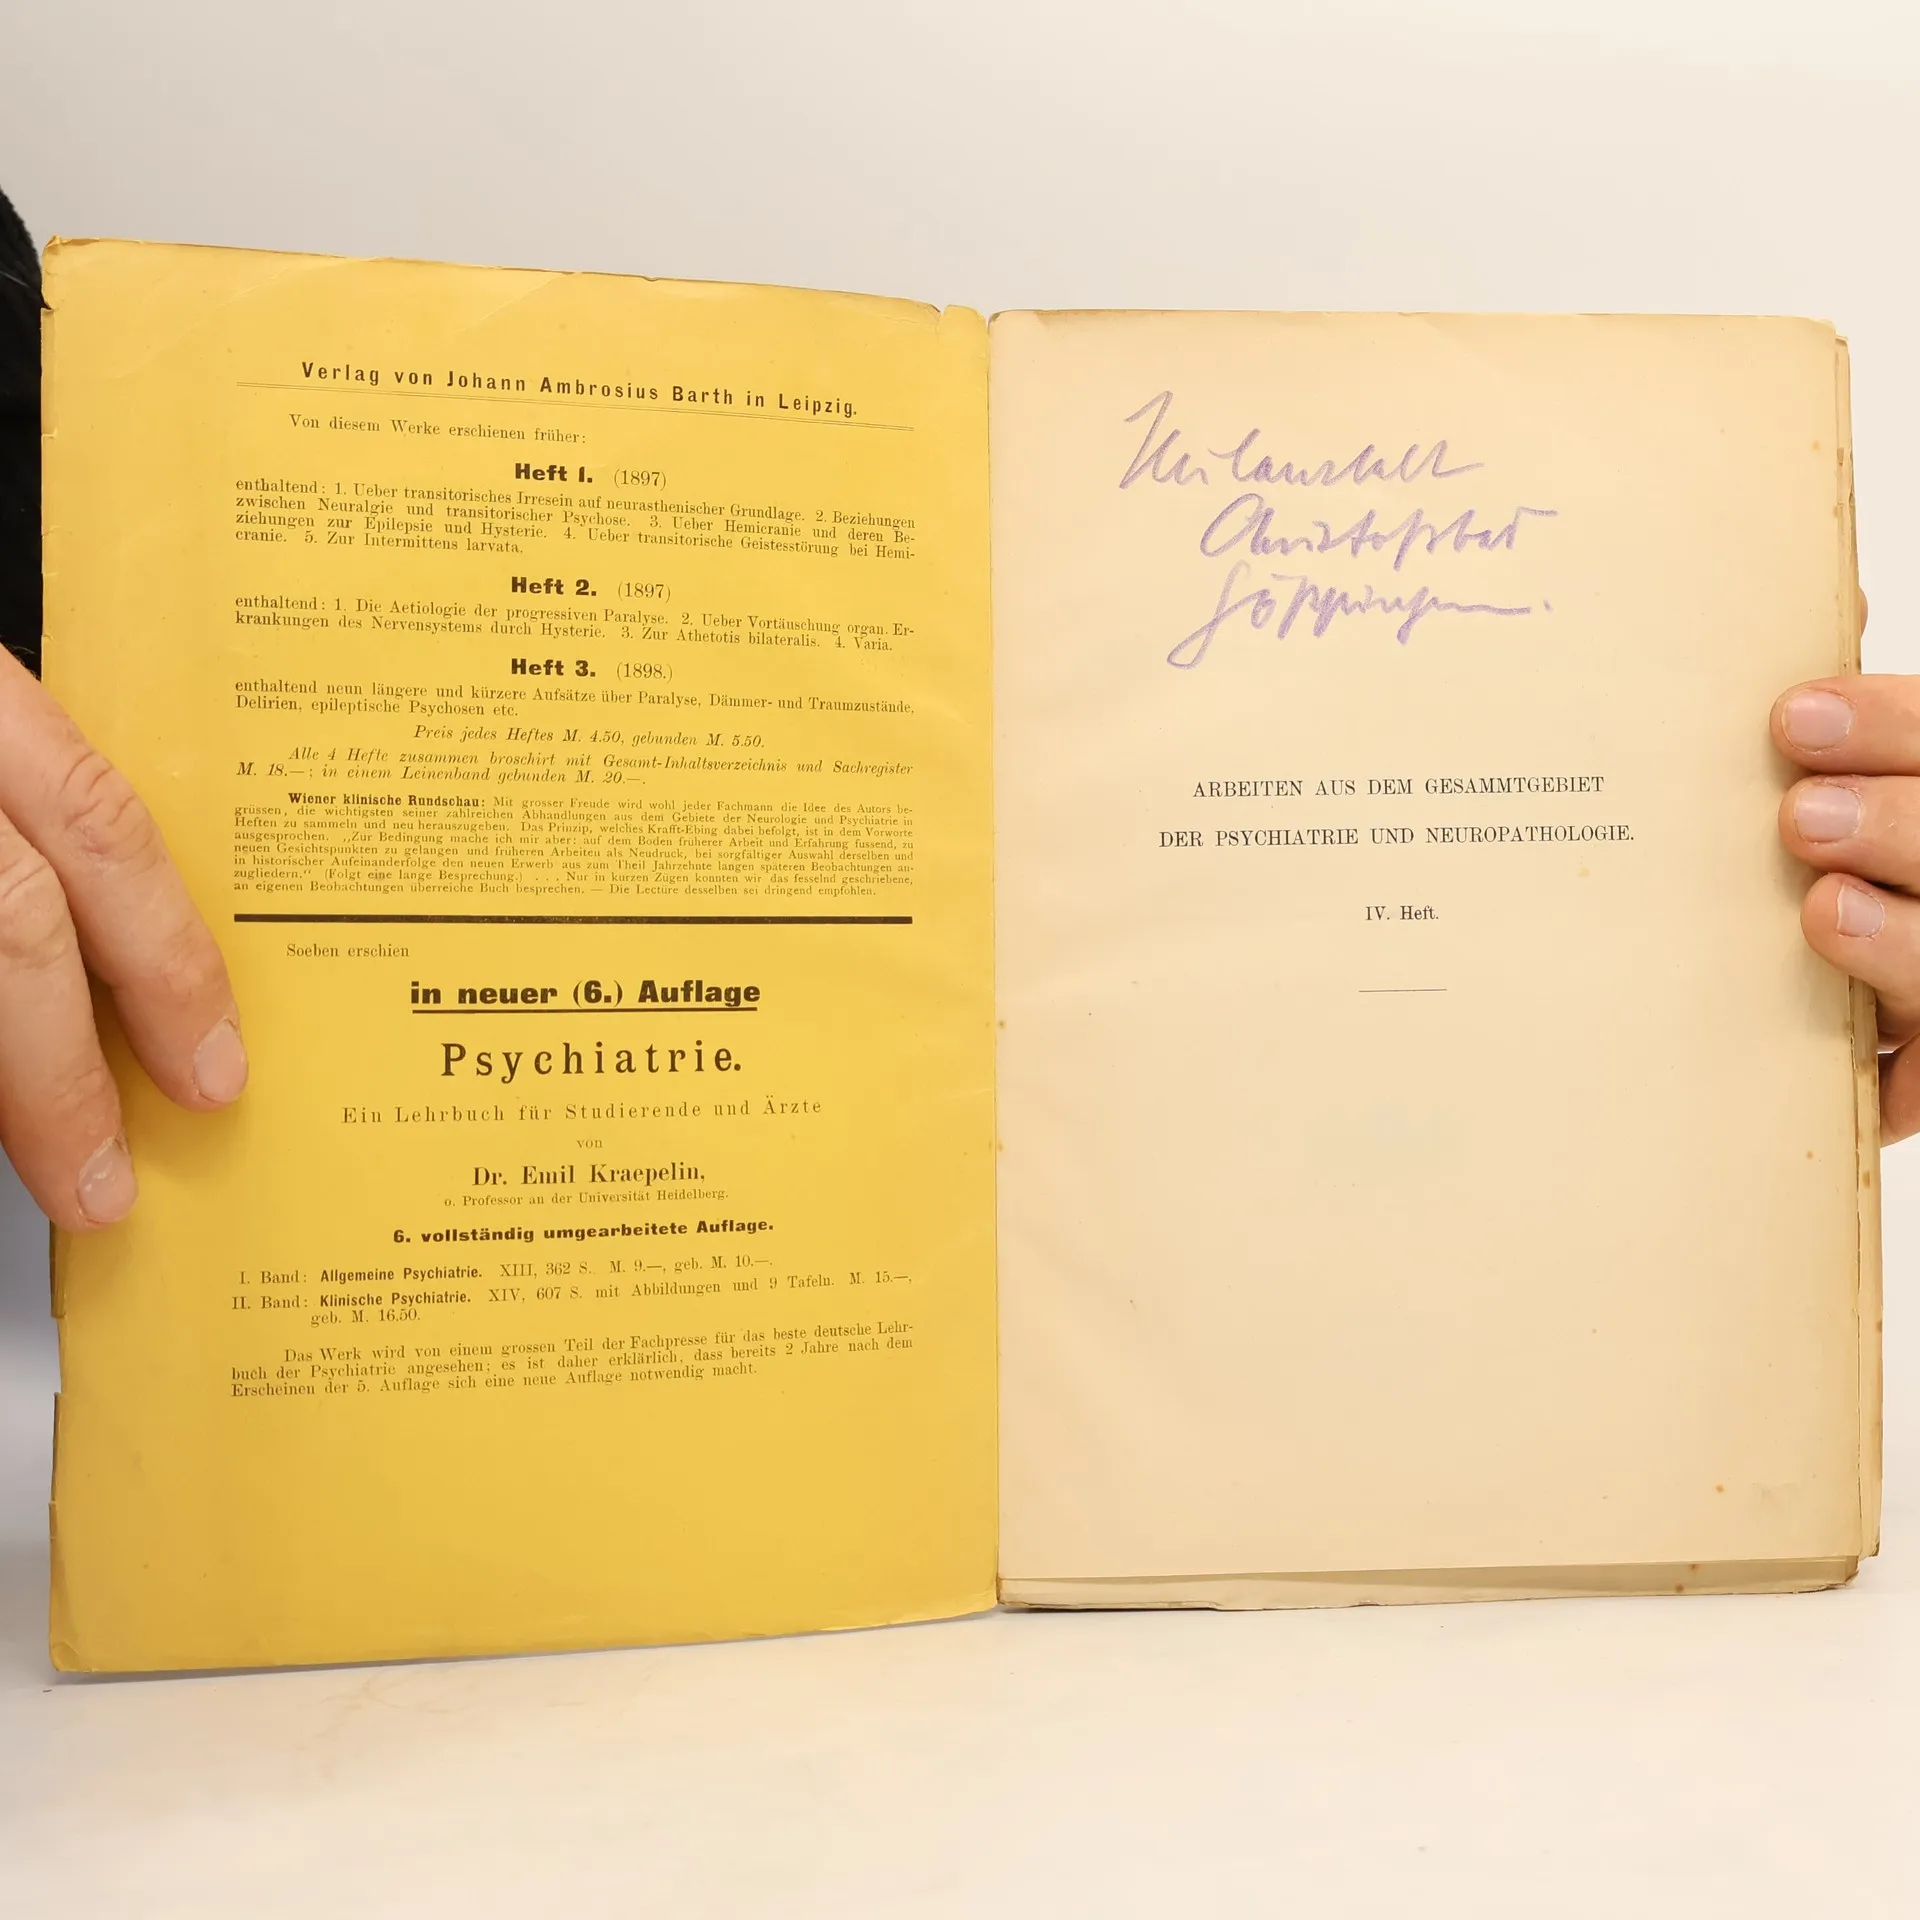 Verlag von Johann Ambrosius Barth in Leipzig.
Von diesem Werke erschienen früher:
Heft 1. (1897)
enthaltend: 1. Ueber transitorisches Irresein auf neurasthenischer Grundlage. 2. Beziehungen
zwischen Neuralgie und transitorischer Psychose. 3. Ueber Hemicranie und deren Be-
ziehungen zur Epilepsie und Hysterie. 4. Ueber transitorische Geistesstörung bei Hemi-
cranie. 5. Zur Intermittens larvata.
Heft 2. (1897)
enthaltend: 1. Die Aetiologie der progressiven Paralyse. 2. Ueber Vortäuschung organ. Er-
krankungen des Nervensystems durch Hysterie. 3. Zur Athetotis bilateralis. 4. Varia.
Heft 3. (1898.)
enthaltend neun längere und kürzere Aufsätze über Paralyse, Dämmer- und Traumzustände,
Delirien, epileptische Psychosen etc.
Preis jedes Heftes M. 4.50, gebunden M. 5.50.
Alle 4 Hefte zusammen broschirt mit Gesamt-Inhaltsverzeichnis und Sachregister
M. 18.—; in einem Leinenband gebunden M. 20.—.
Wiener klinische Rundschau: Mit grosser Freude wird wohl jeder Fachmann die Idee des Autors be-
grüssen, die wichtigsten seiner zahlreichen Abhandlungen aus dem Gebiete der Neurologie und Psychiatrie in
Heften zu sammeln und neu herauszugeben. Das Prinzip, welches Krafft-Ebing dabei befolgt, ist in dem Vorworte
ausgesprochen. „Zur Bedingung mache ich mir aber: auf dem Boden früherer Arbeit und Erfahrung fussend, zu
neuen Gesichtspunkten zu gelangen und früheren Arbeiten als Neudruck, bei sorgfältiger Auswahl derselben und
in historischer Aufeinanderfolge den neuen Erwerb aus zum Theil Jahrzehnte langen späteren Beobachtungen an-
zugliedern.“ (Folgt eine lange Besprechung.) . . . Nur in kurzen Zügen konnten wir das fesselnd geschriebene,
an eigenen Beobachtungen überreiche Buch besprechen. — Die Lectüre desselben sei dringend empfohlen.
Soeben erschien
in neuer (6.) Auflage
Psychiatrie.
Ein Lehrbuch für Studierende und Ärzte
von
Dr. Emil Kraepelin,
o. Professor an der Universität Heidelberg.
6. vollständig umgearbeitete Auflage.
I. Band: Allgemeine Psychiatrie. XIII, 362 S. M. 9.—, geb. M. 10.—.
II. Band: Klinische Psychiatrie. XIV, 607 S. mit Abbildungen und 9 Tafeln. M. 15.—,
geb. M. 16.50.
Das Werk wird von einem grossen Teil der Fachpresse für das beste deutsche Lehr-
buch der Psychiatrie angesehen; es ist daher erklärlich, dass bereits 2 Jahre nach dem
Erscheinen der 5. Auflage sich eine neue Auflage notwendig macht.
Heilanstalt
Christofsbad
Göppingen.
ARBEITEN AUS DEM GESAMMTGEBIET
DER PSYCHIATRIE UND NEUROPATHOLOGIE.
IV. Heft.